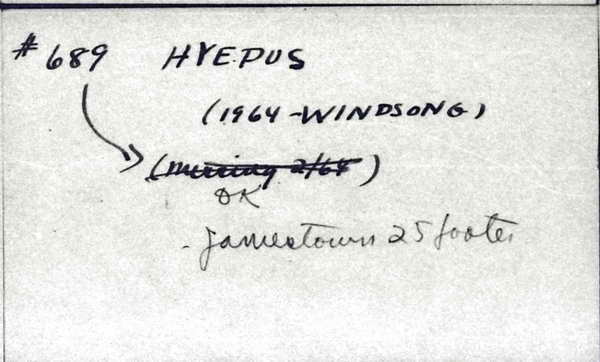 #689 HYEPUS
(1964-WINDSONG)
(Missing 2/68)
OK
- Jamestown 25 footer